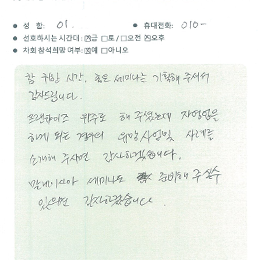 ● 성 함: 01. ● 휴대전화: 010-
● 선호하시는 시간대: ☑금 □토 / □오전 ☑오후
● 차회 참석희망 여부: ☑예 □아니오
참 귀한 시간, 좋은 세미나를 기획해 주셔서
감사드립니다.
프랜차이즈 위주로 해 주셨는데 자영업을
하게 되는 경우의 유망사업및 사례를
소개해 주시면 감사하겠습니다.
말레이시아 세미나도 준비해 주실수
있으면 감사하겠습니다.